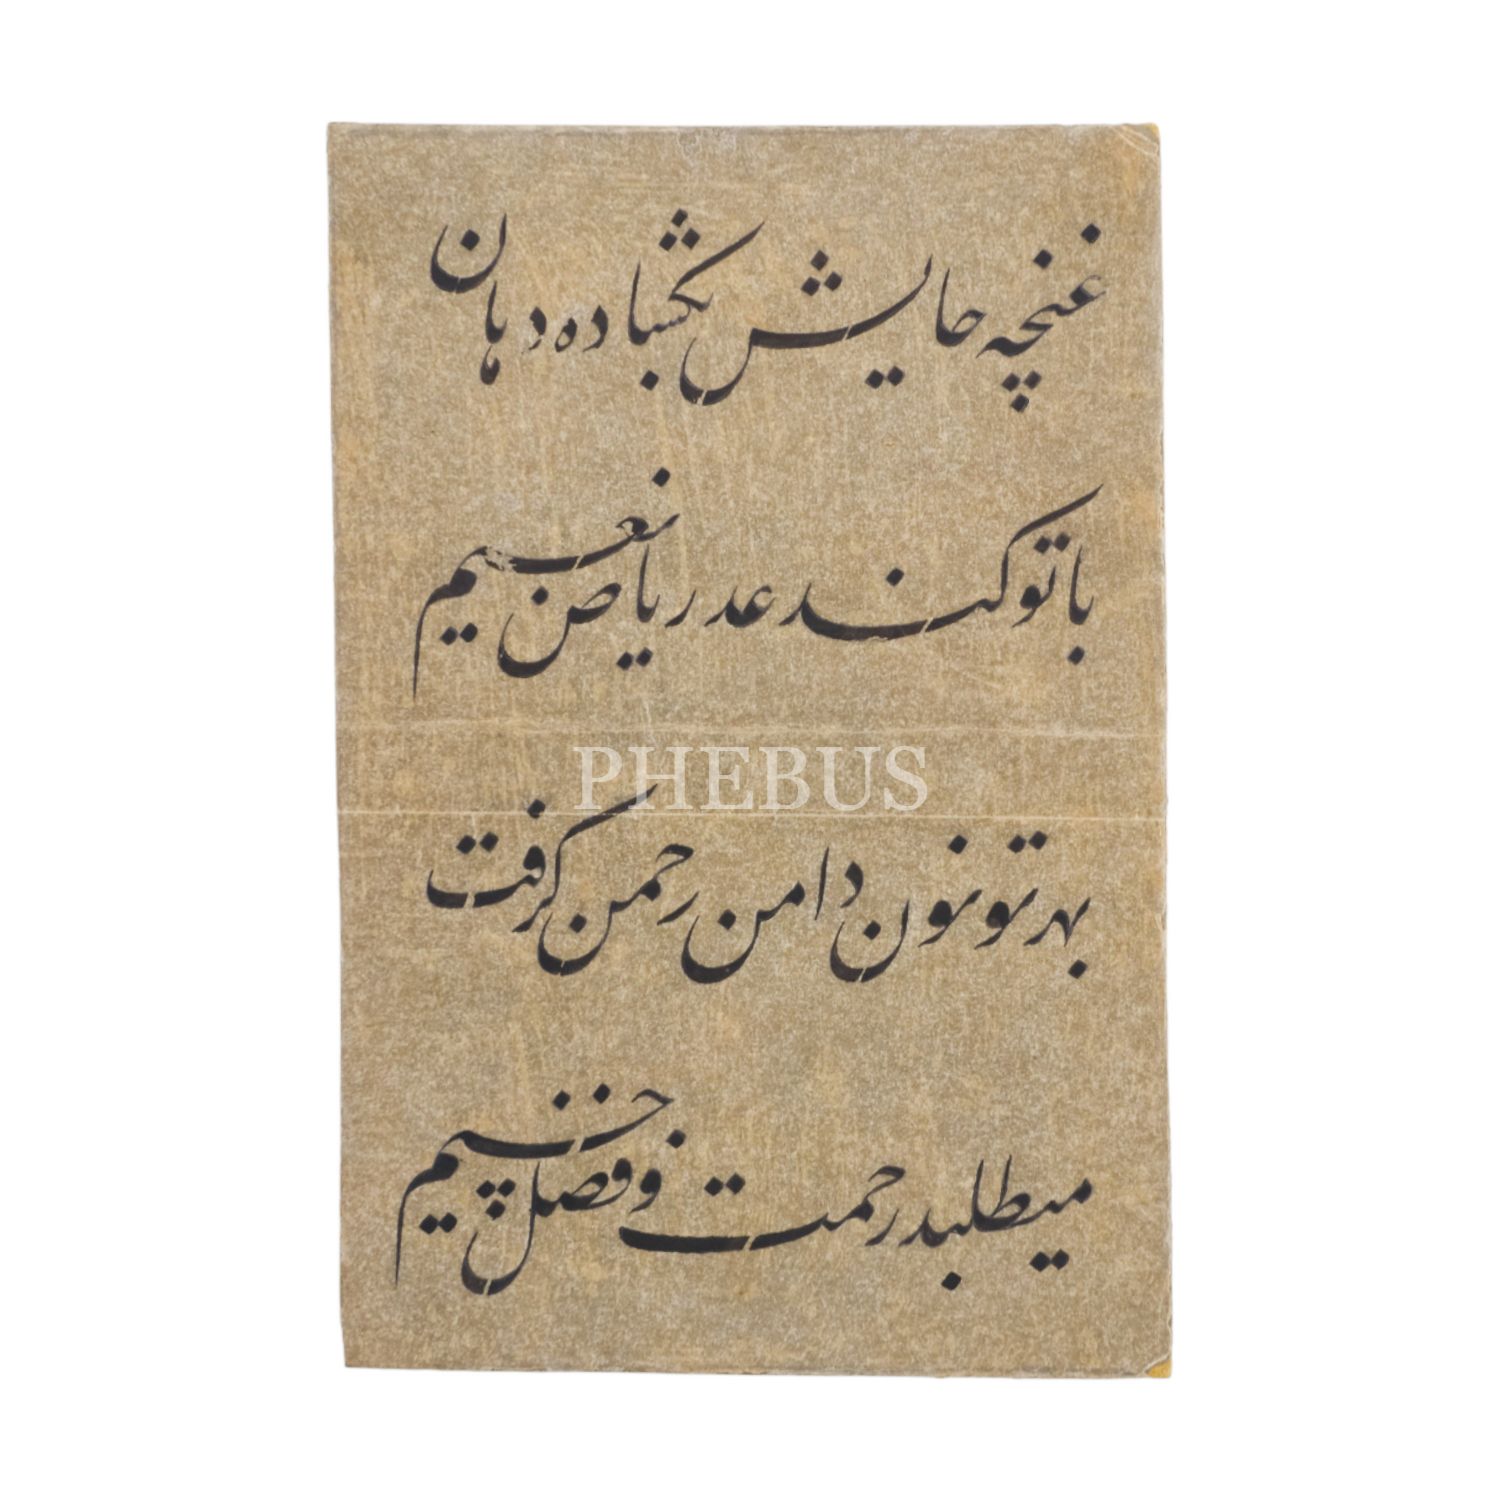 غنچه حایش بگشاده دهان
با تو کند عد ریاض نعیم
PHEBUS
بهر تو نون دامن رحمن گرفت
میطلبد رحمت و فضل جسیم